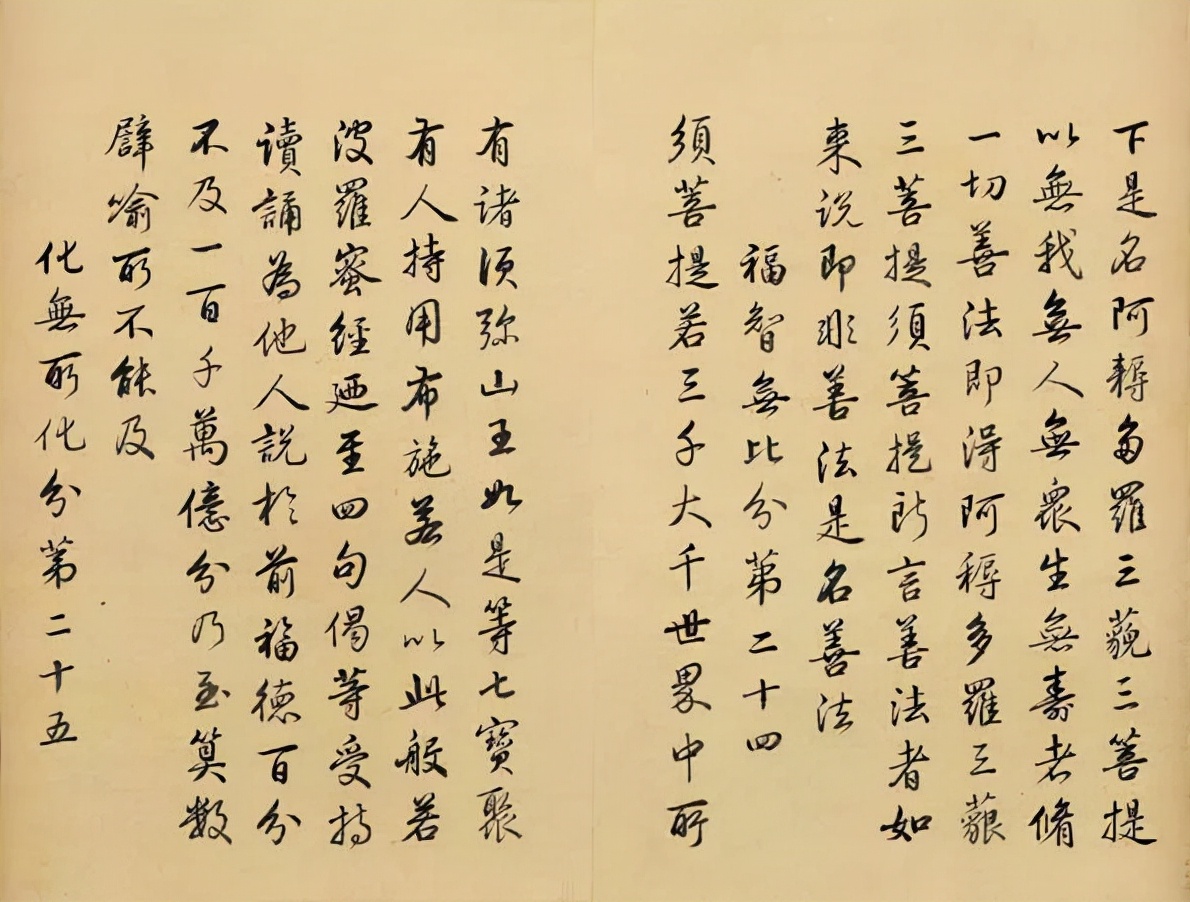 下是名阿耨多羅三藐三菩提
以無我無人無衆生無壽者脩
一切善法即得阿耨多羅三藐
三菩提須菩提所言善法者如
来说即非善法是名善法
福智無比分第二十四
須菩提若三千大千世界中所
有诸须弥山王如是等七寳聚
有人持用布施若人以此般若
波羅蜜經廼至四句偈等受持
讀誦為他人說於前福德百分
不及一百千萬億分乃至筭數
譬喻所不能及
化無所化分第二十五